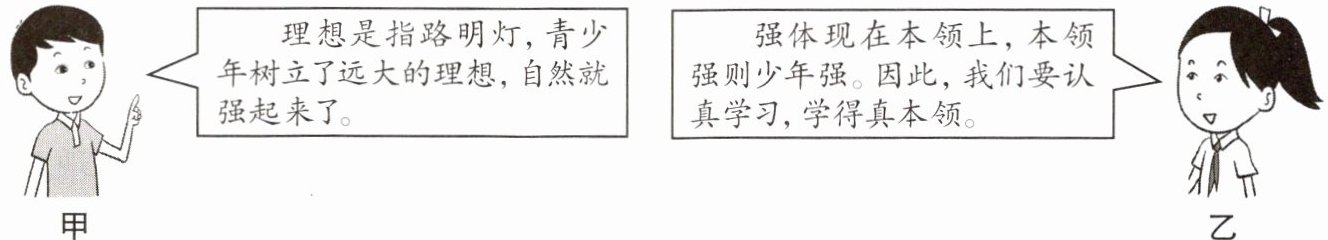 理想是指路明灯，青少
年树立了远大的理想，自然就
强起来了。
强体现在本领上，本领
强则少年强。因此，我们要认
真学习，学得真本领。
甲
乙